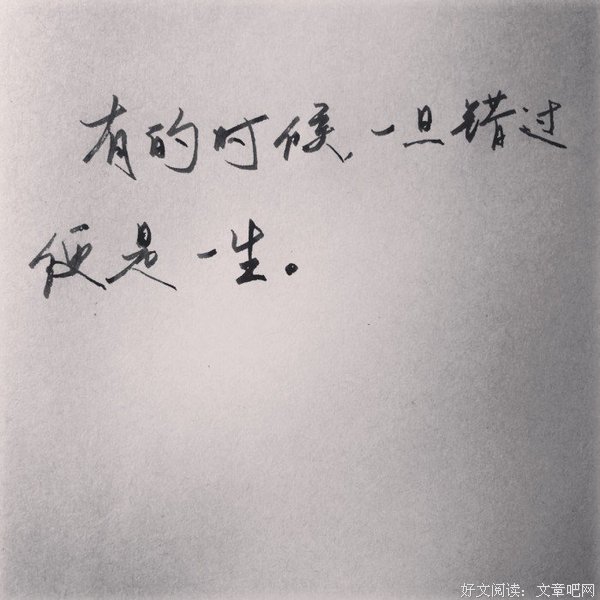 有的时候,一旦错过
便是一生。
好文阅读：文章吧网